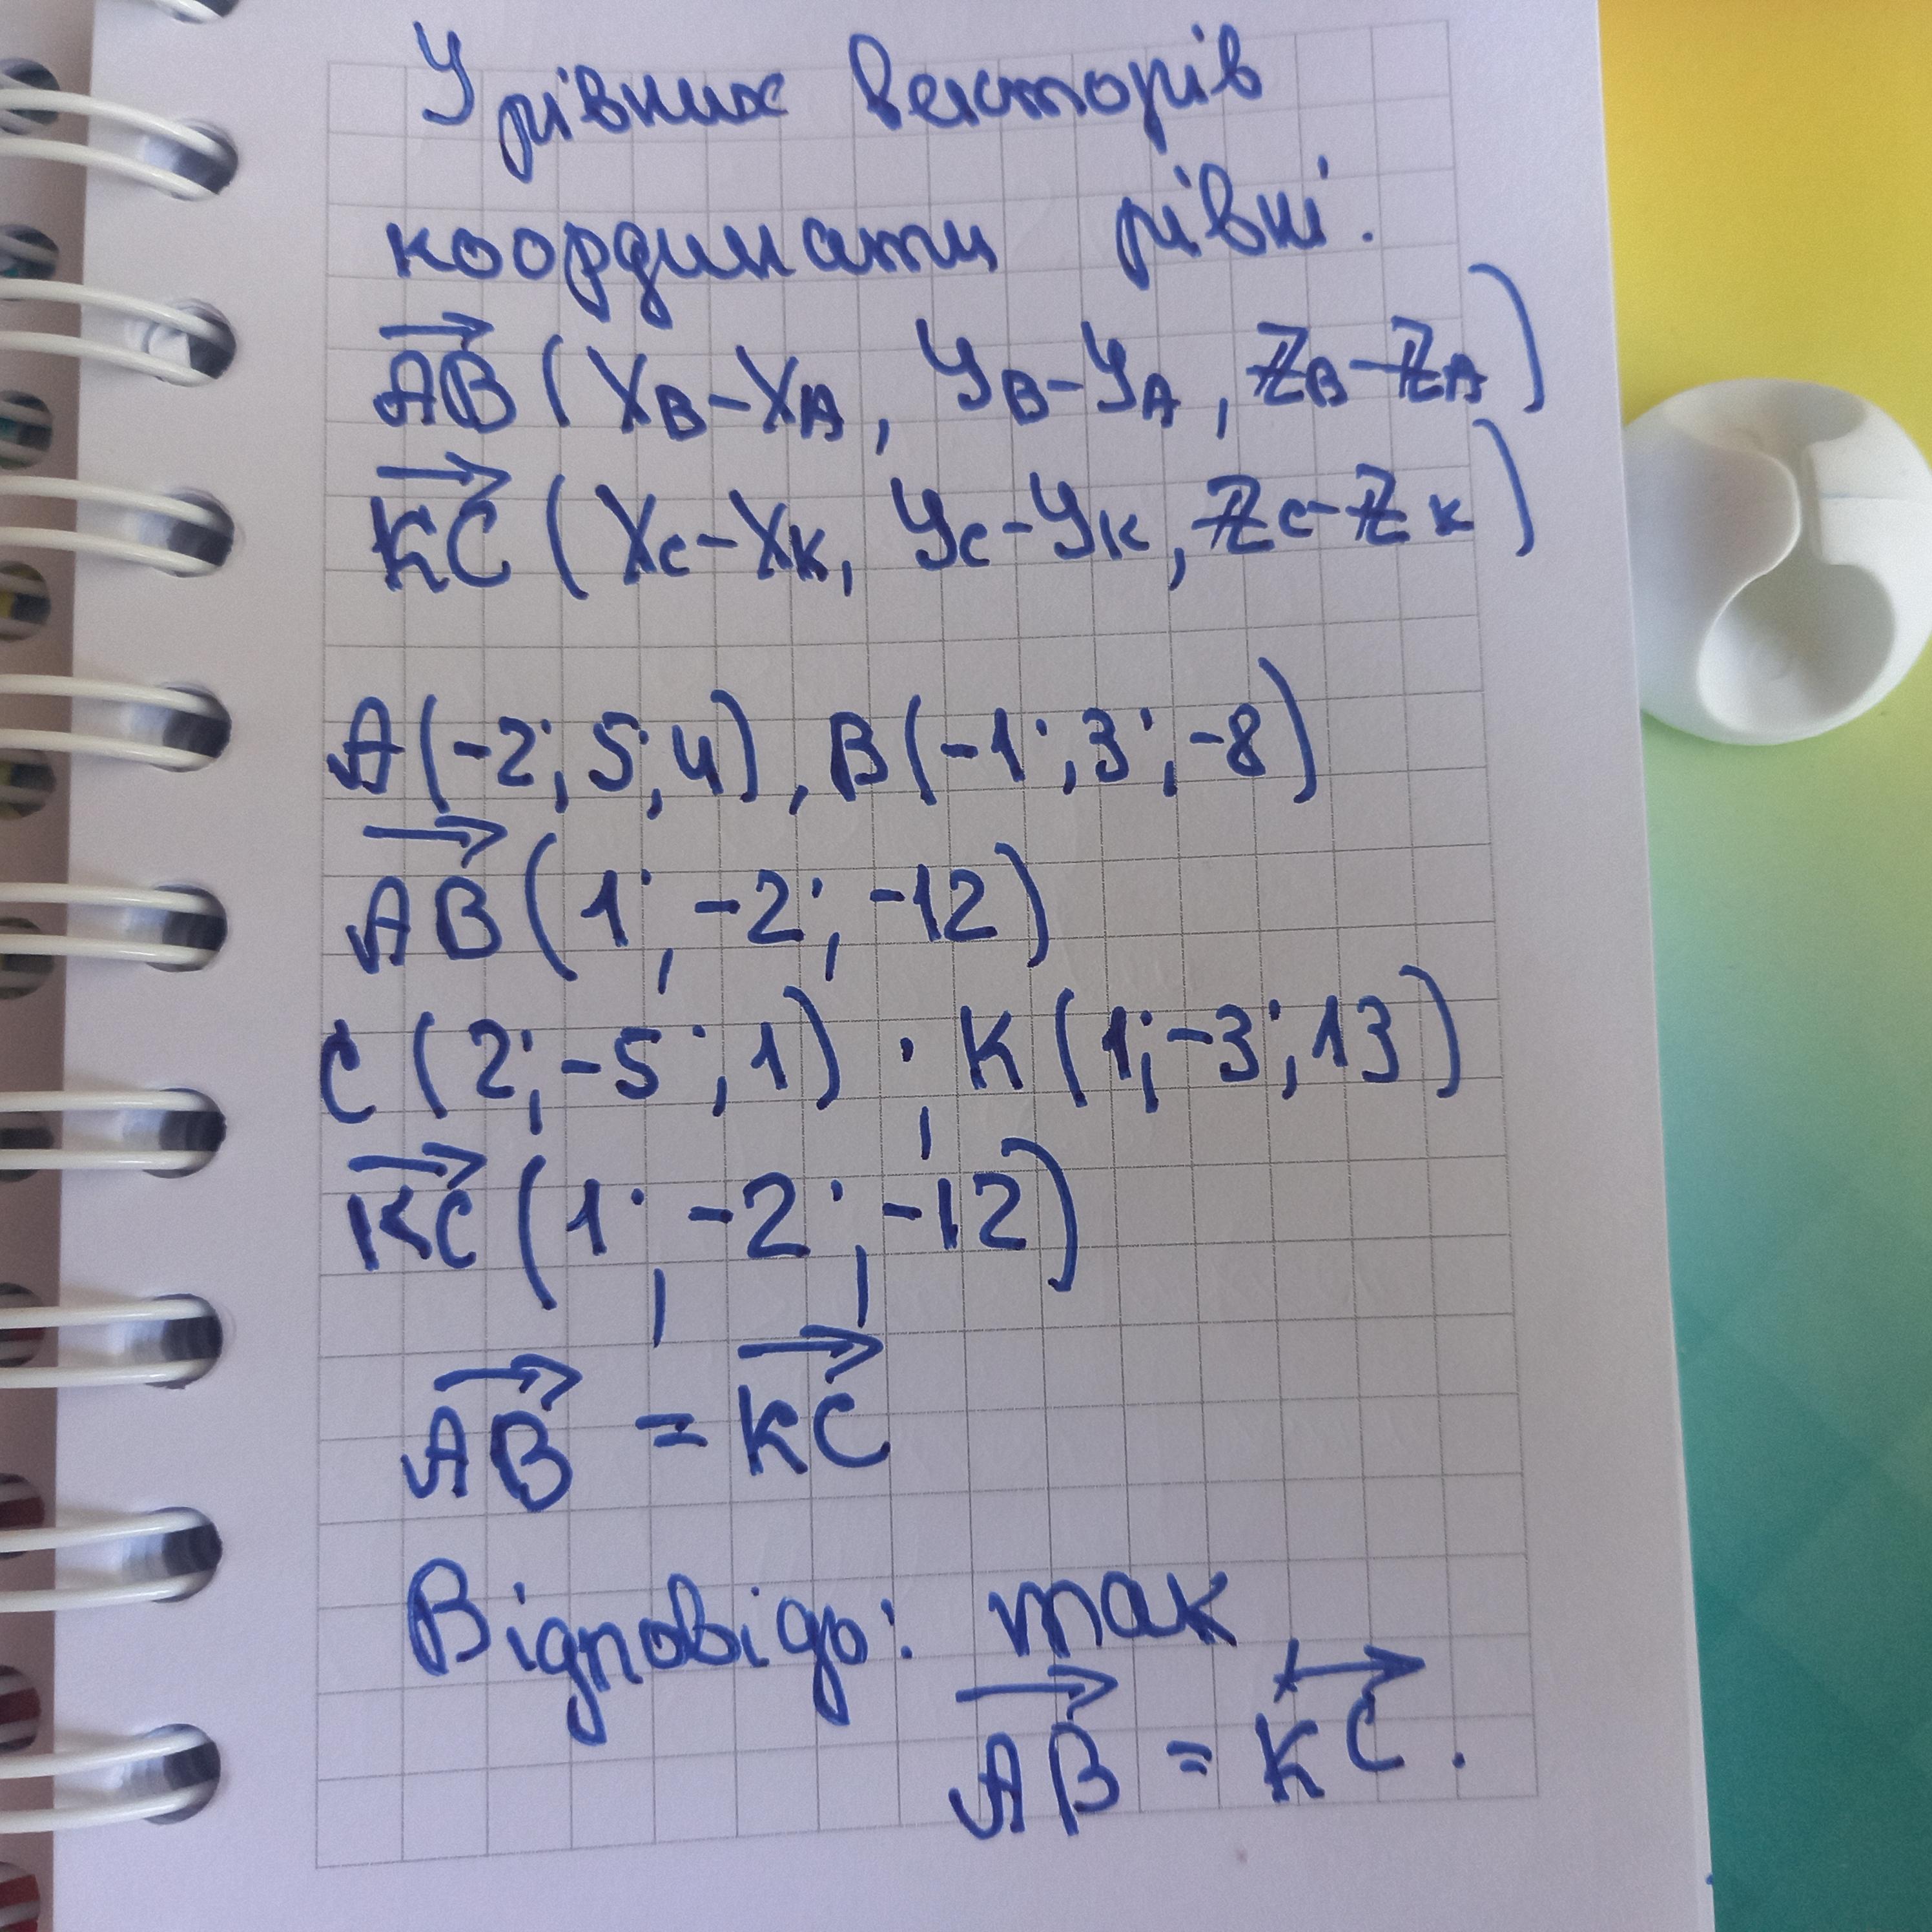 У рівних векторів
координати рівні.
AB (XB-XA, YB-YA, ZB-ZA)
KC (XC-XK, YC-YK, ZC-ZK)
A(-2; 5; 4), B(-1; 3; -8)
AB (1; -2; -12)
C (2; -5; 1) ; K (1; -3; 13)
KC (1; -2; -12)
AB = KC
Відповідь: так
AB = KC.